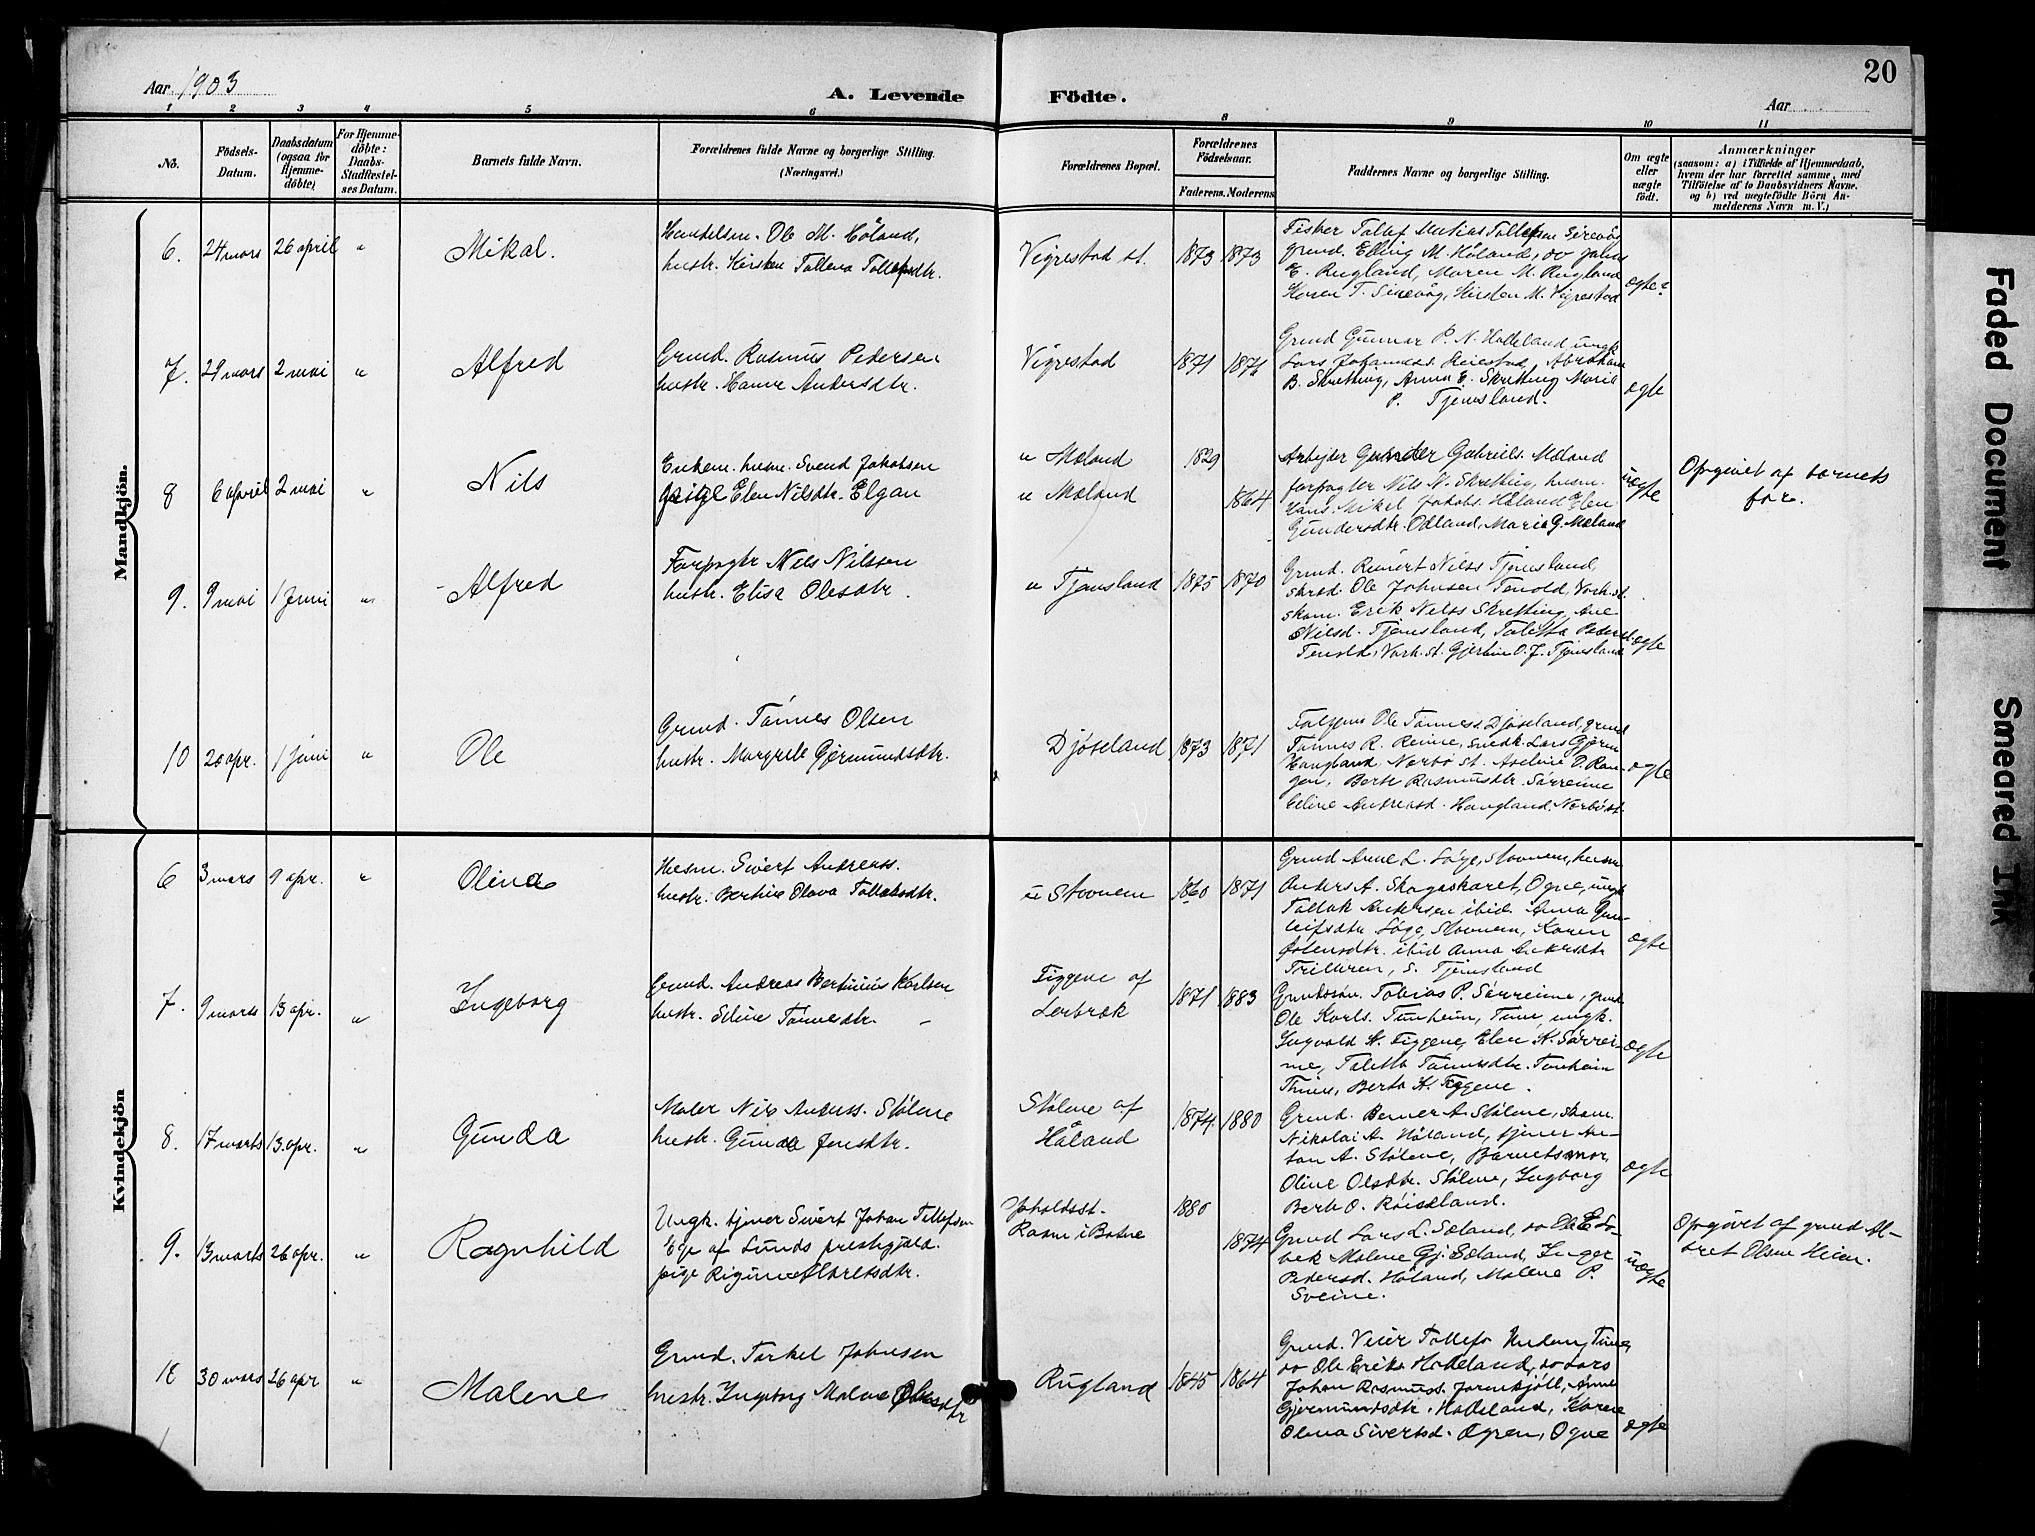 20
Aar 1903
A. Levende Födte.
Aar
1 2 3 4 5 6 8 9 10 11
No.
Födsels-Datum.
Daabsdatum (ogsaa for Hjemme-döbte)
For Hjemme-döbte: Daabs-Stadfæstel-ses Datum.
Barnets fulde Navn.
Forældrenes fulde Navne og borgerlige Stilling. (Næringsvei.)
Forældrenes Bopæl.
Forældrenes Födselsaar.
Faderens. Moderens.
Faddernes Navne og borgerlige Stilling.
Om ægte eller uægte födt.
Anmærkninger
(saasom: a) i Tilfælde af Hjemmedaab,
hvem der har forrettet samme, med
Tilföielse af to Daabsvidners Navne.
og b) ved uægtefödte Börn An-
melderens Navn m. V.)
Mandkjön.
6. 24 mars 26 april " Mikal.
Ole M. Håland,
hustr. Kirsten Tollena Tollefsdtr.
Vigrestad st. 1873 1873
Fisker Tollef Matias Tollefsen Sirevåg
grund. Elling M. Håland, do
E. Rugland, Maren M. Rugland
Karen T. Sirevåg, Kirsten M. Vigrestad
ægte
7. 29 mars 2 mai " Alfred
Grund. Rasmus Pedersen
hustr. Hanne Andersdtr.
Vigrestad 1871 1871
Grund Gunnar P. N. Holleland, ungk
Lars Johanness. Reiestad, Abraham
B. Skretting, Anna E. Skretting Marie
P. Tjemsland.
ægte
8 6 april 2 mai " Nils
Enkem. husm. Svend Jakobsen
pige Elen Nilsdtr. Elgan
u Mæland 1829
u Mæland 1864
Arbejder Gunder Gabriels. Mæland
forpagter Nils N. Skretting, husm.
Hans Mikal Jakobs. Håland Elen
Gundersdtr. Odland, Marie G. Mæland
uægte
Opgivet af barnets
far.
9. 9 mai 1 Juni " Alfred
Forpagtr Nils Nilssen
hustr. Elisa Olesdtr.
u Tjemsland 1875 1870
Grund. Reinert Nils Tjemsland,
skræd. Ole Johnsen Tenold, Varh. st.
skom. Erik Nilss Skretting, Ane
Nilsd. Tjemsland, Taletta Peders
Tenold, Varh. st. Gjertine O. J. Tjemsland
ægte
10 20 apr. 1 juni " Ole
Grund. Tønnes Olsen
hustr. Margrete Gjermundsdtr.
Djøseland 1873 1871
Ole Tønness. Djøseland, grund
Tønnes R. Reime, snedk. Lars Gjerm
Haugland. Nærbø st. Aseline O. Ran-
gen, Berte Rasmusdtr. Sørreime
Celine Andreasd. Haugland, Nærbø st
ægte
Kvindekjön
6 3 mars 9 apr. " Olina
Husm. Sivert Andreass.
hustr. Bertine Olava Tollaksdtr.
u Stavnem 1860 1871
Grund Arne L. Søge, Stavnem, husm
Anders A. Skogaskaret, Ogne, ungk
Tollak Andersen ibid. Anna Gun-
leifsdtr Søge, Stavnem, Karen
ibid Anna Andersdtr
s. Tjemsland
ægte
7. 9 mars 13 apr. " Ingeborg
Grund. Andreas Bertinius Karlsen
hustr. Seline Tønnesdtr.
Figgene af
Lerbræk 1871 1883
Grundssøn. Tobias P. Sørreime, grund
Ole Karls. Tunheim, Time, ungk.
Ingvald K. Figgene, Elen K. Sørrei-
me, Taletta Tønnesdtr. Tunheim
Thime, Berta K. Figgene.
ægte
8. 17 marts 13 apr. " Gunda
Maler Nils Anderss. Stølene
hustr. Gunda Jensdtr.
Stølene af
Håland 1874 1880
Grund. Berner A. Stølene, skom
Nikolai A. Håland, tjener An-
ton A. Stølene, Barnets mor,
Oline Olsdtr. Stølene, Ingborg
Berte O. Røiseland.
ægte
9. 13 marts 26 apr. " Ragnhild
Ungk. tjener Sivert Johan Tollefsen
Ege af Lunds prestegjeld.
pige Regine Albretsdtr.
1880 1874
Grund Lars L. Sæland, do Ole E. Lo-
bek Malene Gj. Sæland, Inger
Pedersd. Håland, Malene P.
Sveine.
uægte
Opgivet af grund Al-
bret Olsen Heim.
10 30 mars 26 apr " Malene
Grund. Torkel Johnsen
hustr. Ingeborg Malene Olsdtr
Rugland 1845 1864
Grund. Veier Tollefs Undem, Time,
do Ole Eriks Holleland, do Lars
Johan Rasmuss. Jernkjöll, Anne
Gjermundsdtr. Holleland, Karen
Olena Sivertsd. Ogren, Ogne
ægte
Faded Document
Smeared Ink